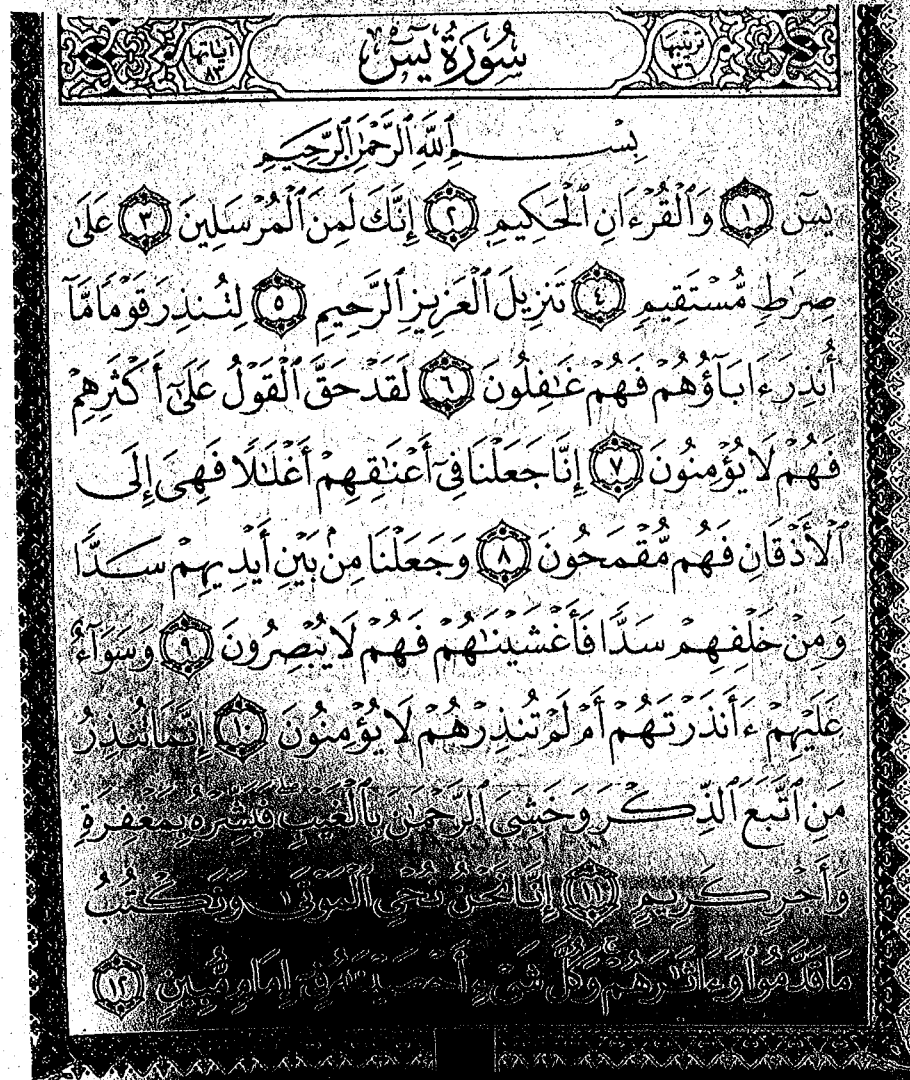 ترتيبها ٣٦ سُورَةُ يسٓ آياتها ٨٣
بِسۡمِ ٱللَّهِ ٱلرَّحۡمَٰنِ ٱلرَّحِيمِ
يسٓ ١ وَٱلۡقُرۡءَانِ ٱلۡحَكِيمِ ٢ إِنَّكَ لَمِنَ ٱلۡمُرۡسَلِينَ ٣ عَلَىٰ
صِرَٰطٖ مُّسۡتَقِيمٖ ٤ تَنزِيلَ ٱلۡعَزِيزِ ٱلرَّحِيمِ ٥ لِتُنذِرَ قَوۡمٗا مَّآ
أُنذِرَ ءَابَآؤُهُمۡ فَهُمۡ غَٰفِلُونَ ٦ لَقَدۡ حَقَّ ٱلۡقَوۡلُ عَلَىٰٓ أَكۡثَرِهِمۡ
فَهُمۡ لَا يُؤۡمِنُونَ ٧ إِنَّا جَعَلۡنَا فِيٓ أَعۡنَٰقِهِمۡ أَغۡلَٰلٗا فَهِيَ إِلَى
ٱلۡأَذۡقَانِ فَهُم مُّقۡمَحُونَ ٨ وَجَعَلۡنَا مِنۢ بَيۡنِ أَيۡدِيهِمۡ سَدّٗا
وَمِنۡ خَلۡفِهِمۡ سَدّٗا فَأَغۡشَيۡنَٰهُمۡ فَهُمۡ لَا يُبۡصِرُونَ ٩ وَسَوَآءٌ
عَلَيۡهِمۡ ءَأَنذَرۡتَهُمۡ أَمۡ لَمۡ تُنذِرۡهُمۡ لَا يُؤۡمِنُونَ ١٠ إِنَّمَا تُنذِرُ
مَنِ ٱتَّبَعَ ٱلذِّكۡرَ وَخَشِيَ ٱلرَّحۡمَٰنَ بِٱلۡغَيۡبِۖ فَبَشِّرۡهُ بِمَغۡفِرَةٖ
وَأَجۡرٖ كَرِيمٍ ١١ إِنَّا نَحۡنُ نُحۡيِ ٱلۡمَوۡتَىٰ وَنَكۡتُبُ
مَا قَدَّمُواْ وَءَاثَٰرَهُمۡۚ وَكُلَّ شَيۡءٍ أَحۡصَيۡنَٰهُ فِيٓ إِمَامٖ مُّبِينٖ ١٢